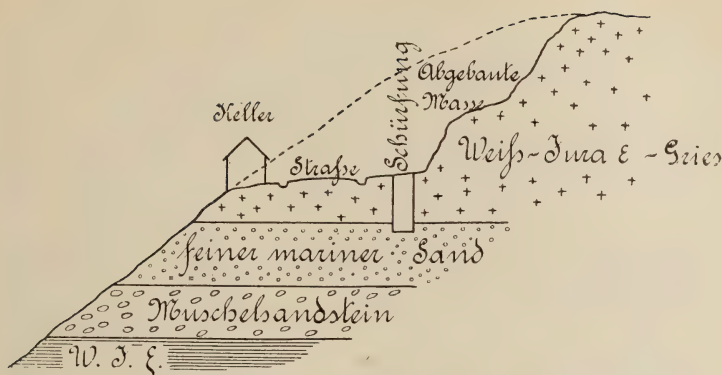 Keller
Schürfung
Abgebaute
Masse
Strasse
Weiſs-Jura ε - Gries
feiner mariner Sand
Muschelsandstein
W. J. ε.